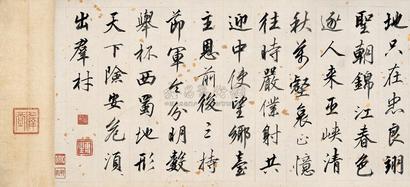 地只在忠良翊
聖朝錦江春色
逐人來巫峽清
秋萬壑哀正憶
往時嚴僕射共
迎中使望鄉臺
主恩前後三持
節軍令分明數
舉杯西蜀地形
天下險安危須
出羣材